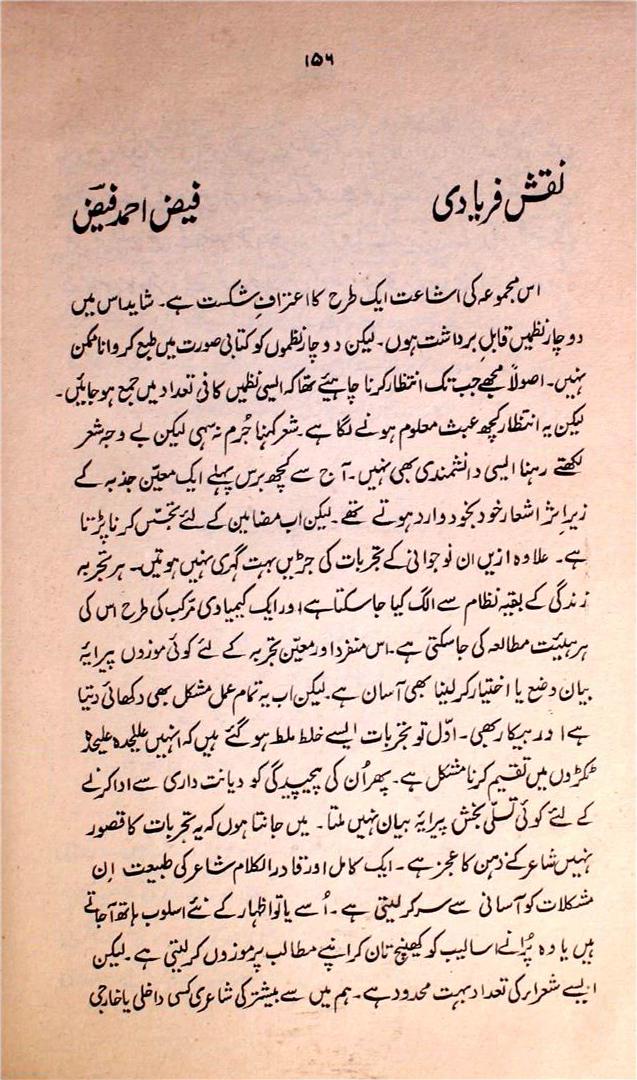 ۱۵۶
نقش فریادی
فیض احمد فیضؔ
اس مجموعہ کی اشاعت ایک طرح کا اعترافِ شکست ہے۔ شاید اس میں
دو چار نظمیں قابلِ برداشت ہوں۔ لیکن دو چار نظموں کو کتابی صورت میں طبع کروانا ممکن
نہیں۔ اصولاً مجھے جب تک انتظار کرنا چاہیئے تھا کہ ایسی نظمیں کافی تعداد میں جمع ہو جائیں۔
لیکن یہ انتظار کچھ عبث معلوم ہونے لگا ہے۔ شعر کہنا جُرم نہ سہی لیکن بے وجہ شعر
لکھتے رہنا ایسی دانشمندی بھی نہیں۔ آج سے کچھ برس پہلے ایک معیّن جذبہ کے
زیرِ اثر اشعار خود بخود وارد ہوتے تھے۔ لیکن اب مضامین کے لئے تجسّس کرنا پڑتا
ہے۔ علاوہ ازیں ان نوجوانی کے تجربات کی جڑیں بہت گہری نہیں ہوتیں۔ ہر تجربہ
زندگی کے بقیہ نظام سے الگ کیا جا سکتا ہے اور ایک کیمیاوی مرکب کی طرح اس کی
ہر ہیئت مطالعہ کی جا سکتی ہے۔ اس منفرد اور معیّن تجربہ کے لئے کوئی موزوں پیرایۂ
بیان وضع یا اختیار کر لینا بھی آسان ہے۔ لیکن اب یہ تمام عمل مشکل بھی دکھائی دیتا
ہے اور بیکار بھی۔ اوّل تو تجربات ایسے خلط ملط ہو گئے ہیں کہ انہیں علیٰحدہ علیٰحدہ
ٹکڑوں میں تقسیم کرنا مشکل ہے۔ پھر اُن کی پیچیدگی کو دیانت داری سے ادا کرنے
کے لئے کوئی تسلّی بخش پیرایۂ بیان نہیں ملتا۔ میں جانتا ہوں کہ یہ تجربات کا قصور
نہیں شاعر کے ذہن کا عجز ہے۔ ایک کامل اور قادر الکلام شاعر کی طبیعت اِن
مشکلات کو آسانی سے سر کر لیتی ہے۔ اُسے یا تو اظہار کے نئے اسلوب ہاتھ آ جاتے
ہیں یا وہ پُرانے اسالیب کو کھینچ تان کر اپنے مطالب پر موزوں کر لیتی ہے۔ لیکن
ایسے شعراء کی تعداد بہت محدود ہے۔ ہم میں سے بیشتر کی شاعری کسی داخلی یا خارجی